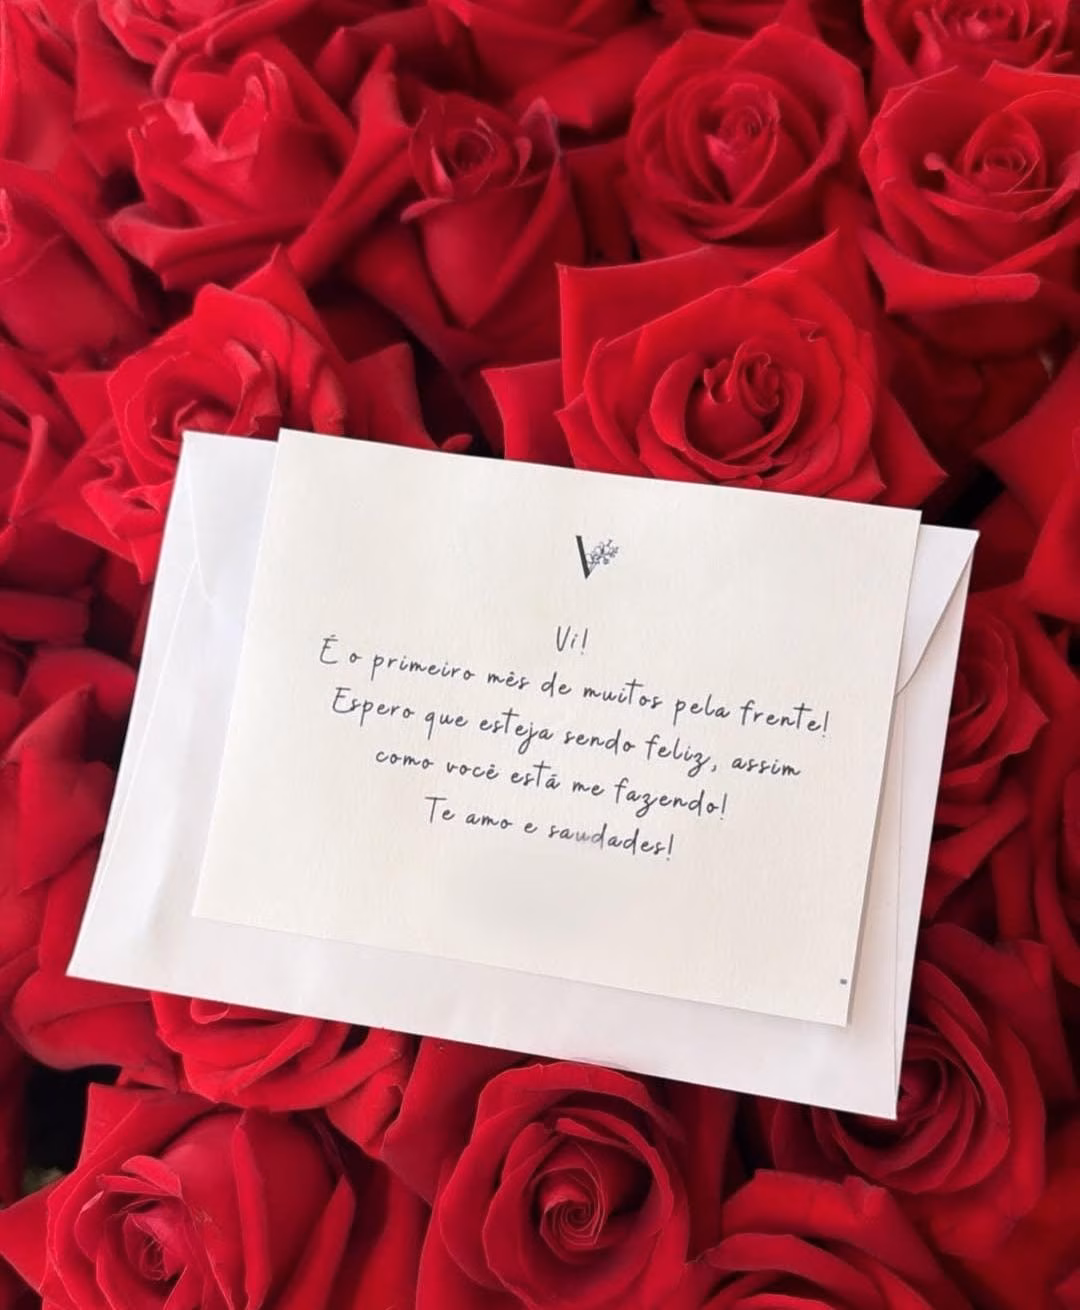 V
Vi!
É o primeiro mês de muitos pela frente!
Espero que esteja sendo feliz, assim
como você está me fazendo!
Te amo e saudades!